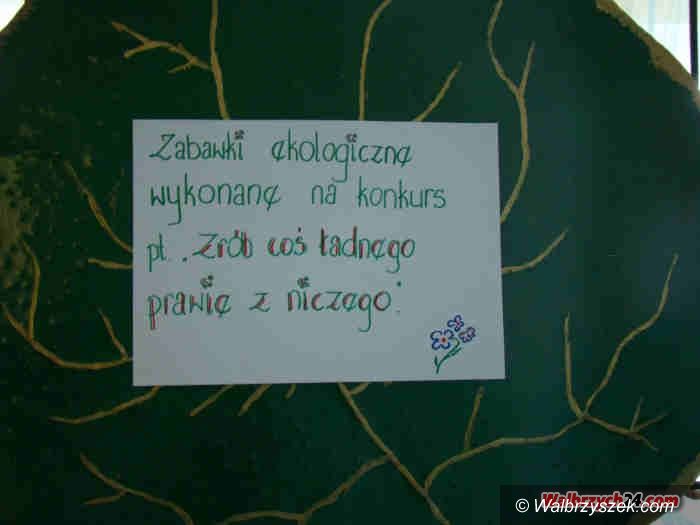 Zabawki ekologiczne
wykonane na konkurs
pt. „Zrób coś ładnego
prawie z niczego"
Walbrzych24.com
© Walbrzyszek.com